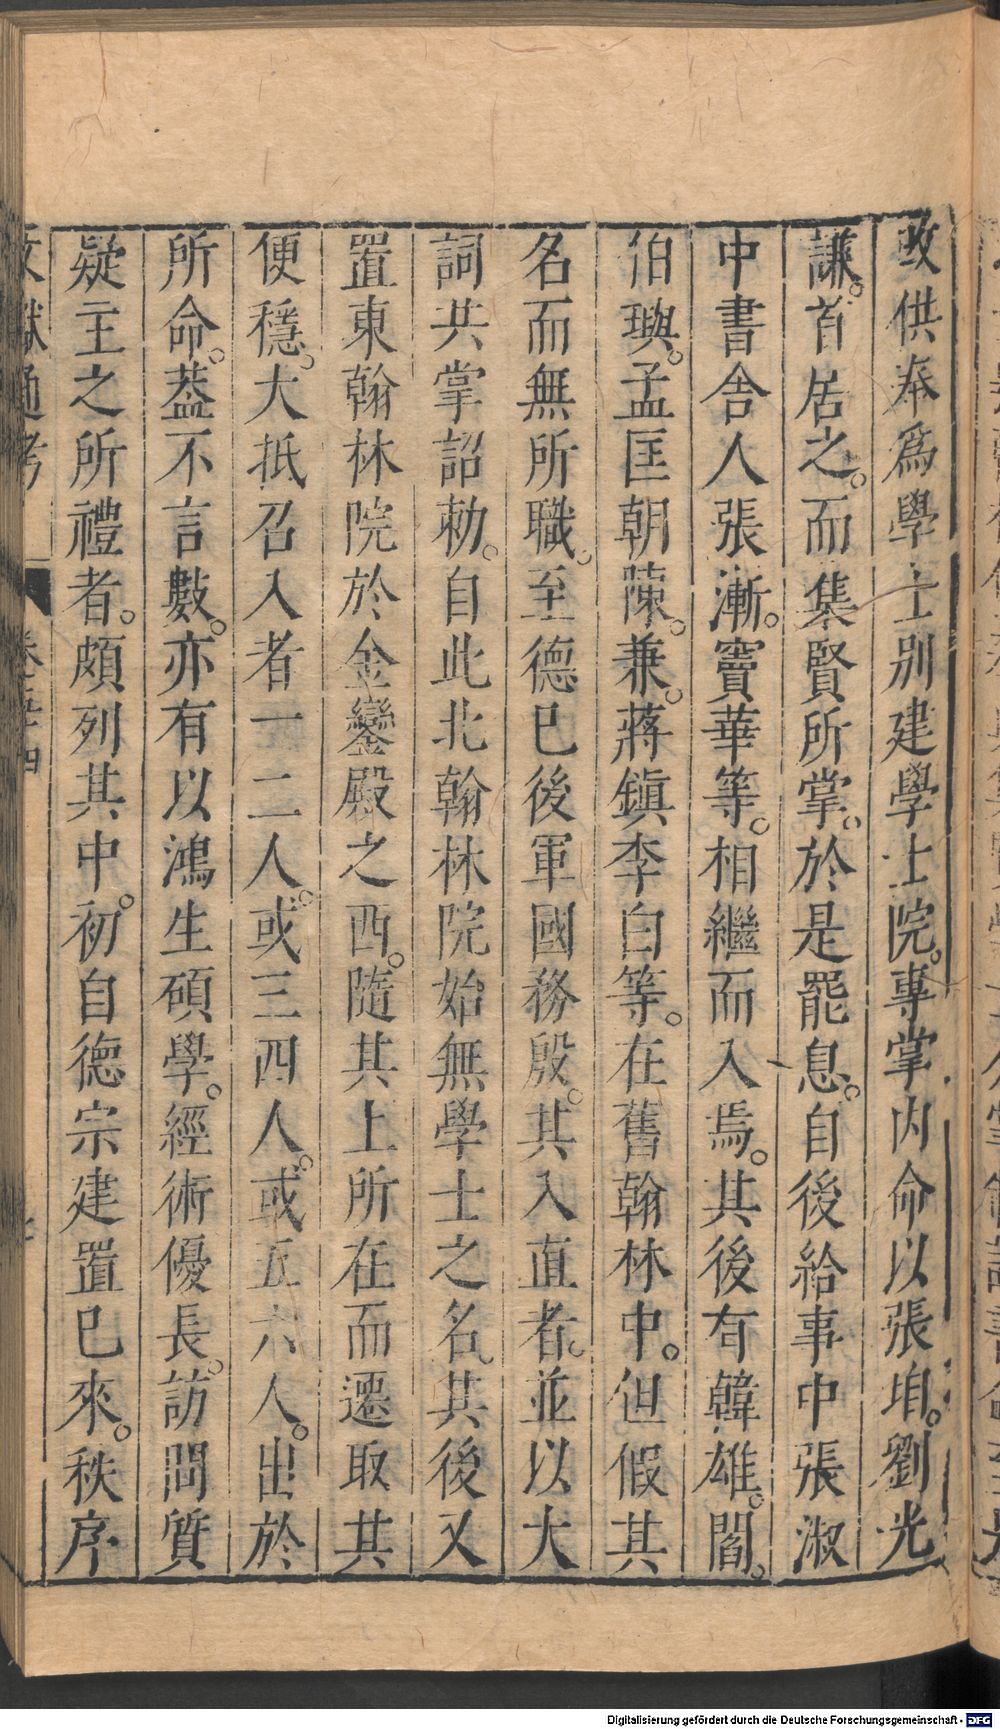 改供奉爲學士別建學士院。專掌內命以張垍。劉光
謙。首居之。而集賢所掌。於是罷息。自後給事中張淑
中書舍人張漸。竇華等。相繼而入焉。其後有韓雄。閻。
伯璵。孟匡朝陳。兼。蔣鎮李白等。在舊翰林中。但假其
名而無所職。至德已後軍國務殷。其入直者。並以大
詞共掌詔勑。自此北翰林院始無學士之名。其後又
置東翰林院於金鑾殿之西。隨其上所在而遷取其
便穩。大抵召入者一二人。或三四人。或五六人。出於
所命。蓋不言數。亦有以鴻生碩學。經術優長。訪問質
疑主之所禮者。頗列其中。初自德宗建置已來。秩序
文獻通考
卷五十四
Digitalisierung gefördert durch die Deutsche Forschungsgemeinschaft - DFG